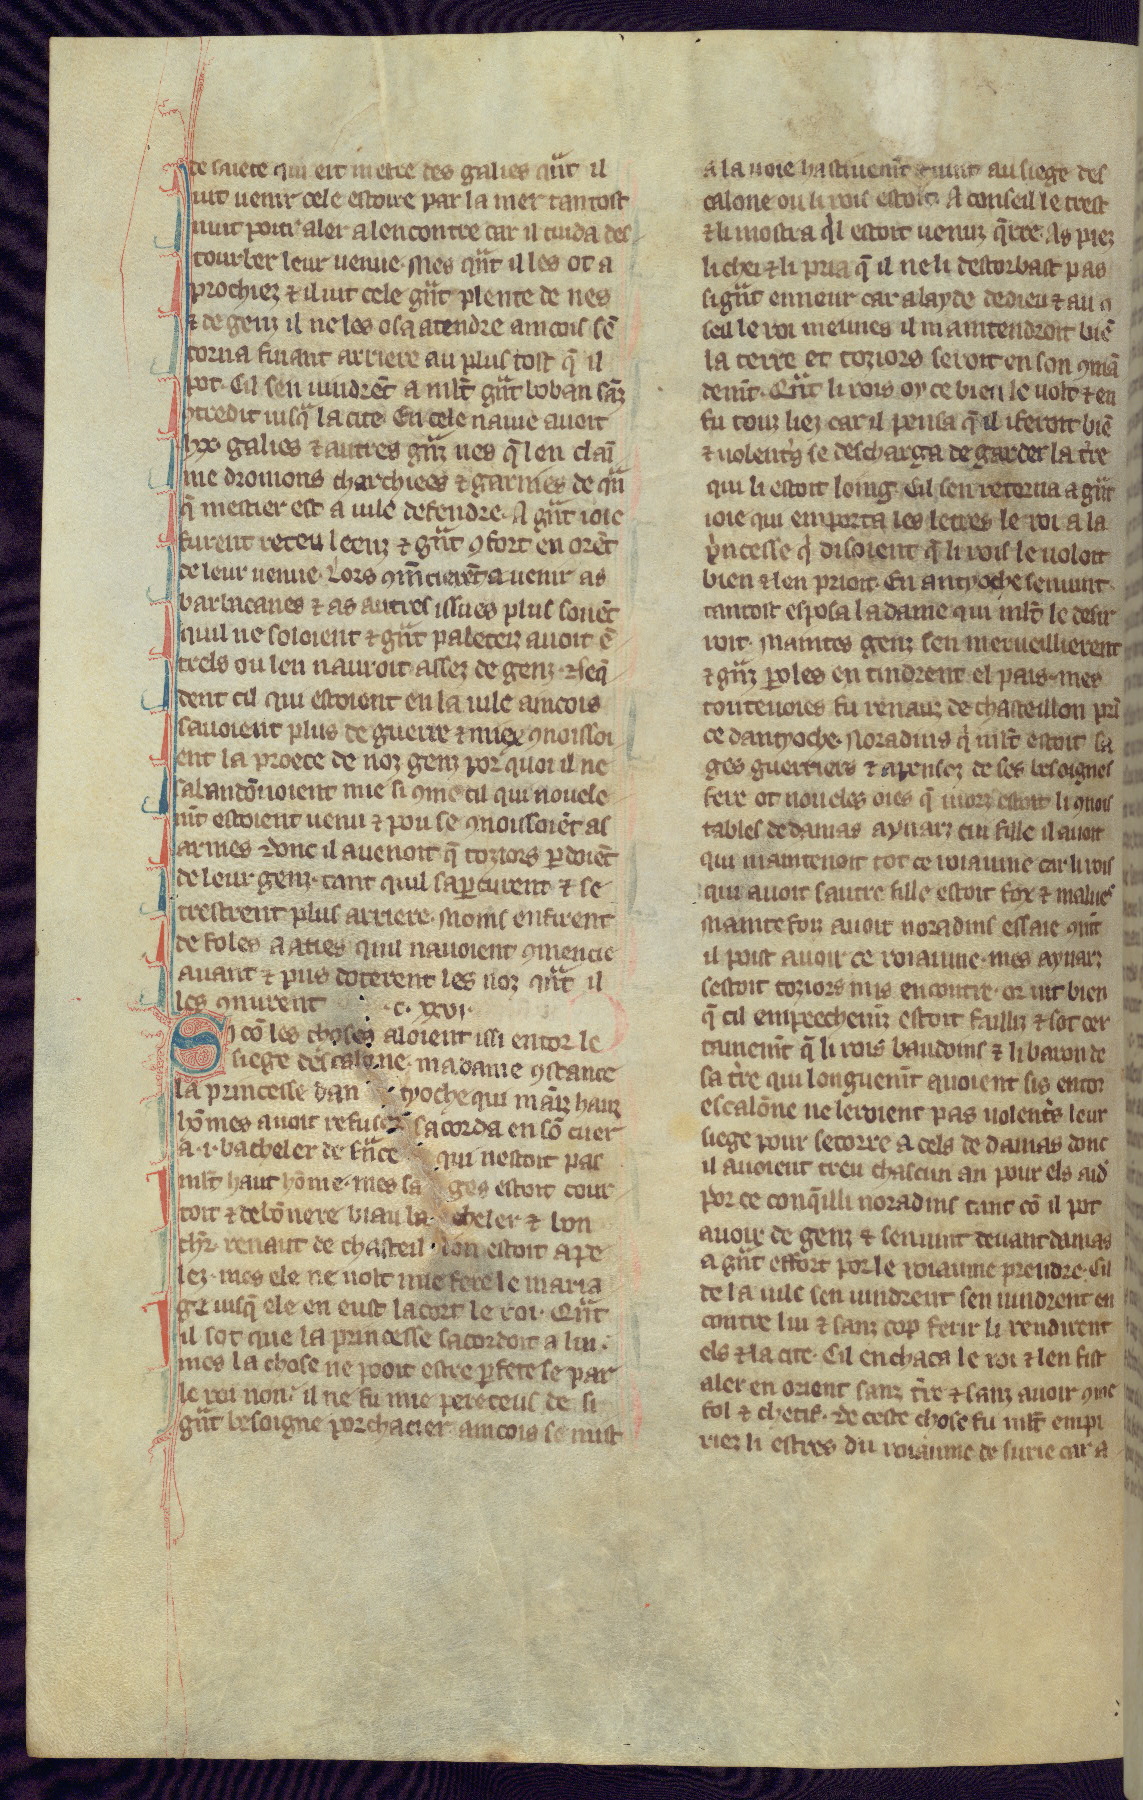 de saiete qui eit metre des galies qu̅t il
vit venir cele estoire par la mer tantost
mut por aler alencontre car il cuida des
tourber leur venue. Mes qu̅t il les ot a
prochiez ⁊ il vit cele gu̅t plente de nes
⁊ de genz il ne les osa atendre aincois se̅
torna fuiant arriere au plus tost q̅ il
pot. Cil sen vindre̅t a ml̅t gu̅t boban sa̅z
ꝯtredit iusq̅ la cite. En cele navie avoit
lxx galies ⁊ autres gu̅z nes q̅ len clai̅
me dromons charchiees ⁊ garnies de qu̅
q̅ mestier est a vile defendre. A gu̅t ioie
furent receu leenz ⁊ gu̅t ꝯfort en ore̅t
de leur venue. Lors ꝯme̅ciere̅t a venir as
barbacanes ⁊ as autres issues plus soue̅t
quil ne soloient ⁊ gu̅t paleteiz avoit e̅
trels ou len nauroit assez de genz.
dent cil qui estoient en la vile aincois
savoient plus de guerre ⁊ miex ꝯnoissoi
ent la proece de noz genz por quoi il ne
sabando̅noient mie si ꝯme cil qui novele
m̅t estoient venu ⁊ pou se ꝯnoissoie̅t as
armes donc il avenoit q̅ toziors ꝑdoie̅t
de leur genz. tant quil saꝑcurent ⁊ se
trestrent plus arriere. Moins enfirent
de foles aaties quil navoient ꝯmencie
avant ⁊ puis doterent les noz qu̅t il
les ꝯnurent .c. xxvi.
Si co̅ les choses aloient issi entor le
siege descalone. madame ꝯstance
la princesse dan tyoche qui mai̅z hauz
ho̅mes avoit refusez sacorda en so̅ cuer
a .i. bacheler de fu̅ce qui nestoit pas
ml̅t haut ho̅me. mes sa ges estoit cour
tois ⁊ debo̅nere biau ba cheler ⁊ bon
chr̅. renaut de chasteil lon estoit ape
lez. mes ele ne volt mie fere le maria
ge iusq̅ ele en eust lacort le roi. Qu̅t
il sot que la princesse sacordoit a lui.
mes la chose ne pooit estre ꝑfete se par
le roi non. il ne fu mie pereceus de si
gu̅t besoigne porchacier. aincois se mist
a la voie hastivem̅t ⁊ vint au siege des
calone ou li rois estoit. A conseil le trest
⁊ li mostra ql estoit venuz q̅rre. As piez
li chei ⁊ li pria q̅ il ne li destorbast pas
si gu̅t enneur car a layde dedieu ⁊ au ꝯ
seil le roi meimes il maintendroit bie̅
la terre et toziors seroit en son ꝯma̅
dem̅t. Qu̅t li rois oy ce bien le volt ⁊ en
fu touz liez car il pensa q̅ il i feroit bie̅
⁊ volent's se descharga de garder la t're
qui li estoit loing. Cil sen retorna a gu̅t
ioie qui emporta les letres le roi a la
p'ncesse q' disoient q̅ li rois le voloit
bien ⁊ len prioit. En antyoche sen vint.
tantost esposa la dame qui ml̅t le desir
roit. Maintes genz sen merveillierent
⁊ gu̅z ꝑoles en tindrent el pais. mes
toutevoies fu renauz de chasteillon pri̅
ce dantyoche. Noradins q' ml̅t estoit sa
ges guerriers ⁊ apensez de ses besoignes
fere ot noveles oies q̅ morz estoit li ꝯnois
tables de damas aynarz cui fille il avoit
qui maintenoit tot ce roiaume car li rois
qui avoit sautre fille estoit fox ⁊ malves
Mainte foiz avoit noradins essaie ꝯm̅t
il poist avoir ce roiaume. mes aynarz
sestoit toziors mis encontre. or vit bien
q̅ cil empeechemz estoit failliz ⁊ sot cer
tainem̅t q̅ li rois baudoins ⁊ li baron de
sa t're qui longuem̅t avoient sis entor
escalo̅ne ne leroient pas volent's leur
siege pour secorre a cels de damas donc
il avoient treu chascun an pour els aid'
por ce conq̅illi noradins tant co̅ il pot
avoir de genz ⁊ sen vint devant damas
a gu̅t effort por le roiaume prendre. Cil
de la vile sen vindrent sen vindrent en
contre lui ⁊ sanz cop ferir li rendirent
els ⁊ la cite. Cil enchaca le roi ⁊ len fist
aler en orient sanz t're ⁊ sanz avoir ꝯme
fol ⁊ chetif. De ceste chose fu ml̅t empi
riez li estres du roiaume de surie car a